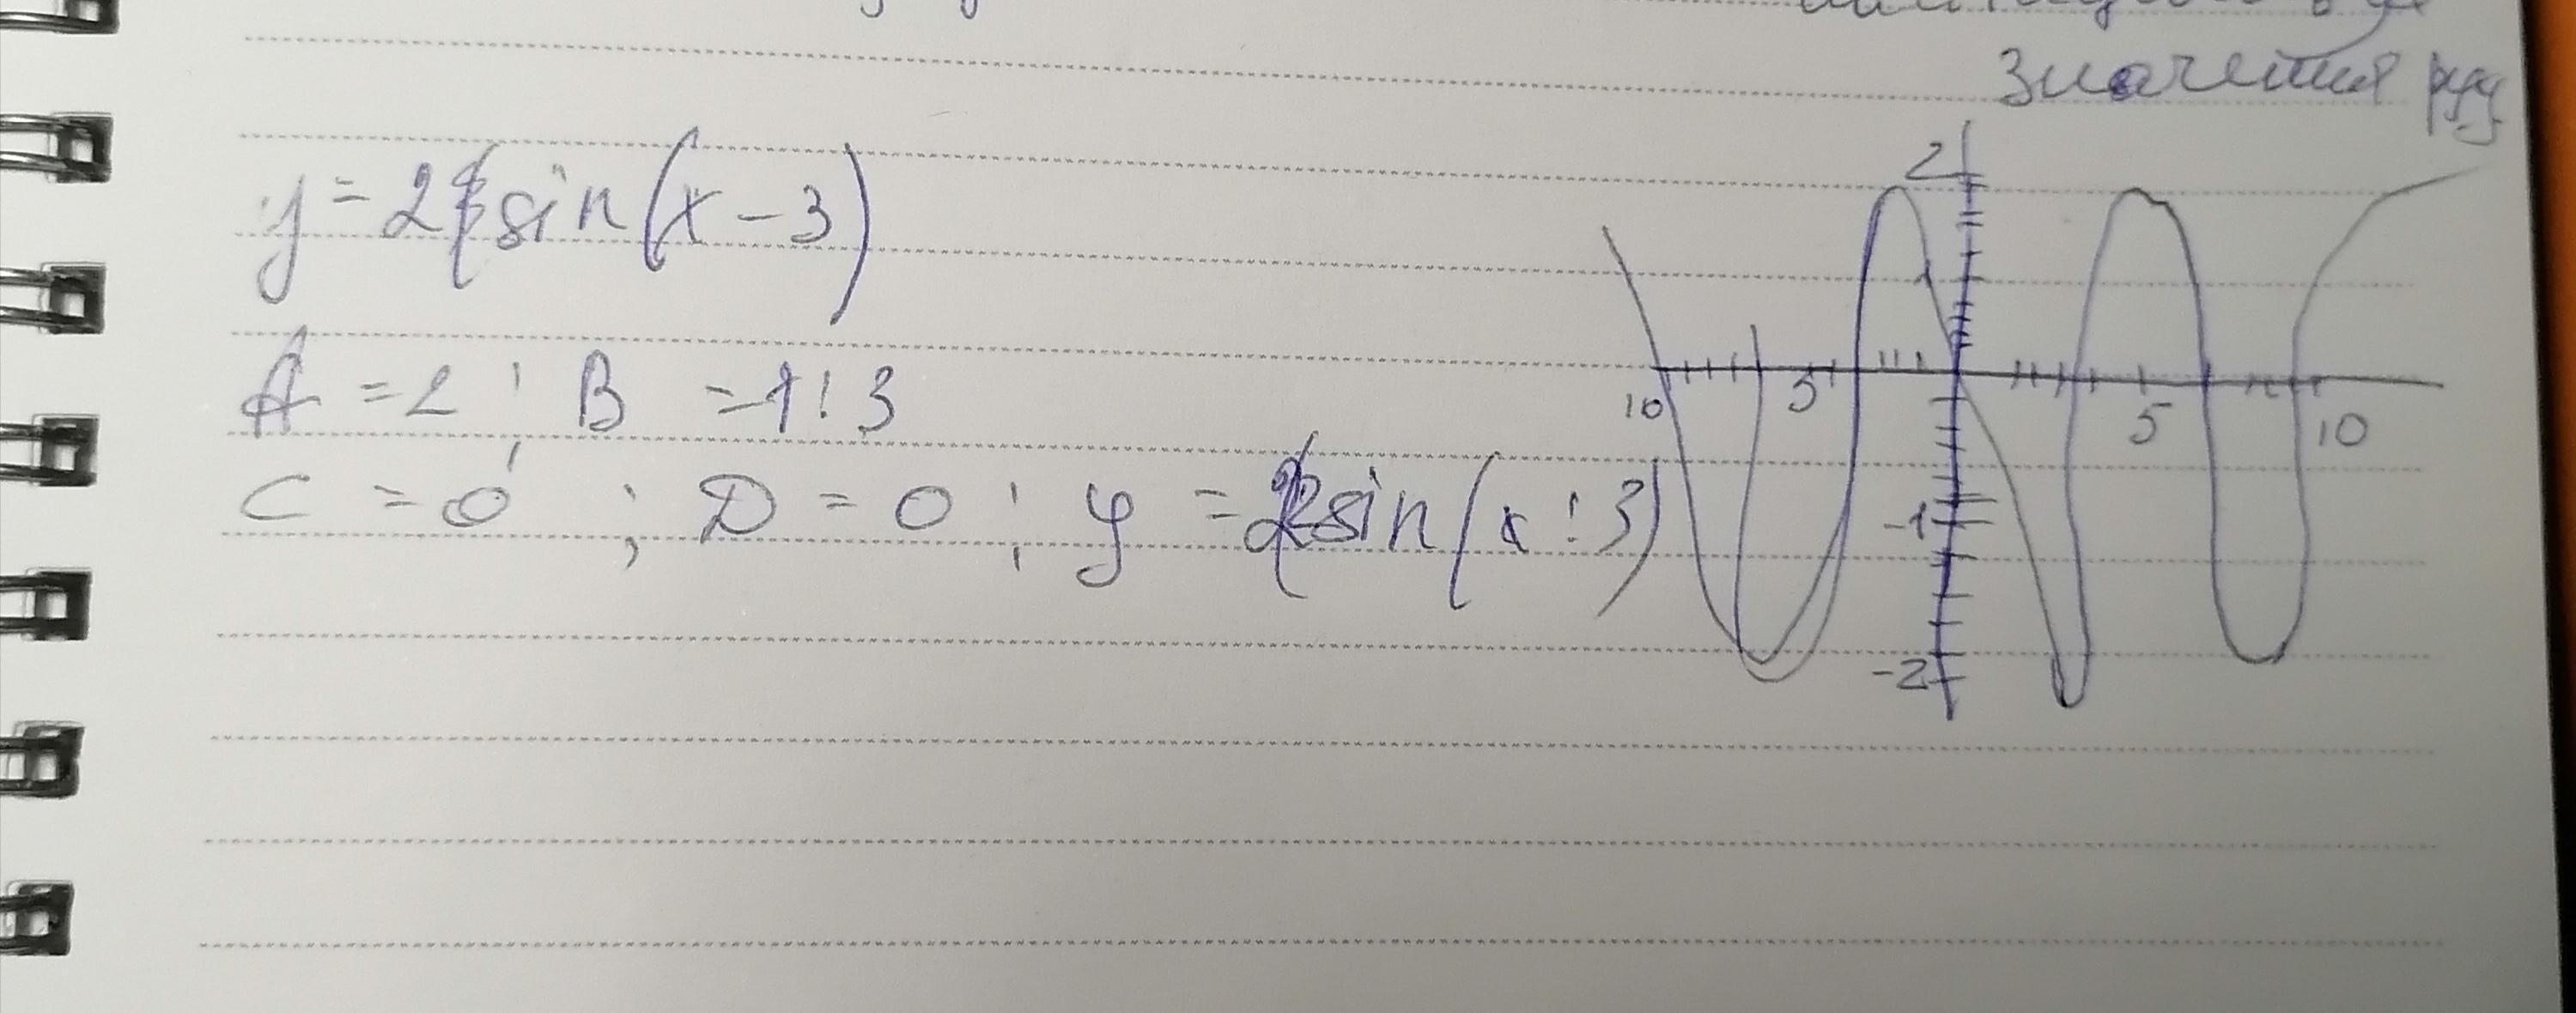 значения
y = 2 sin(x - 3)
A = 2 ; B = 1 : 3
C = 0 ; D = 0 ; y = 2 sin(x : 3)
2
1
10 5 5 10
-1
-2